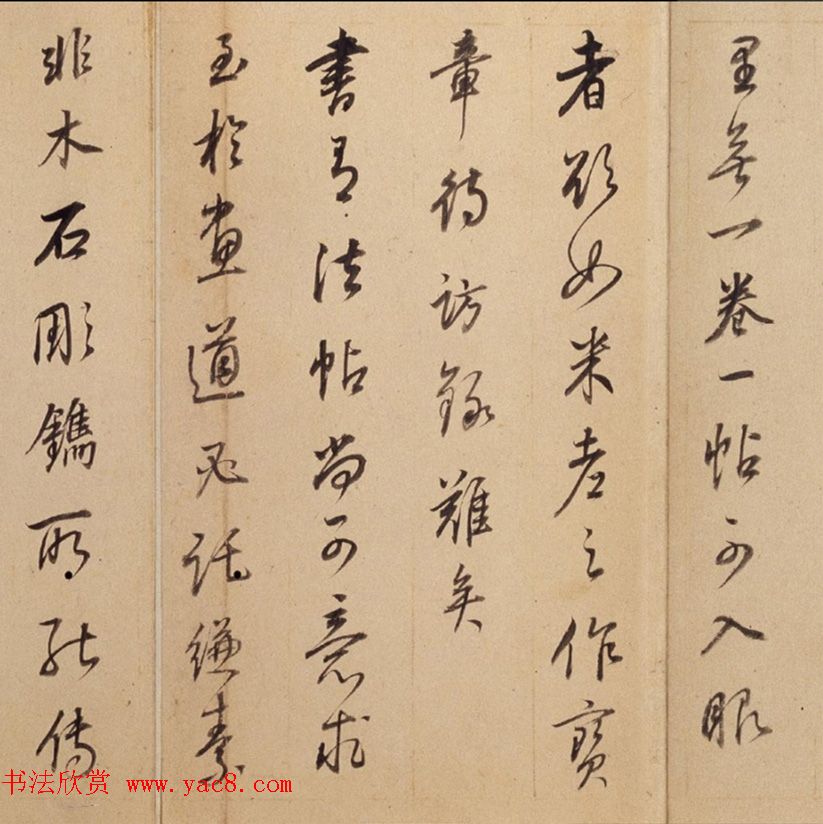 里無一卷一帖可入眼
者欲如米老之作寶
章待訪錄難矣
書有法帖尚可意求
至於畫道必託縑素
非木石彫鐫所能傳
书法欣赏 www.yac8.com